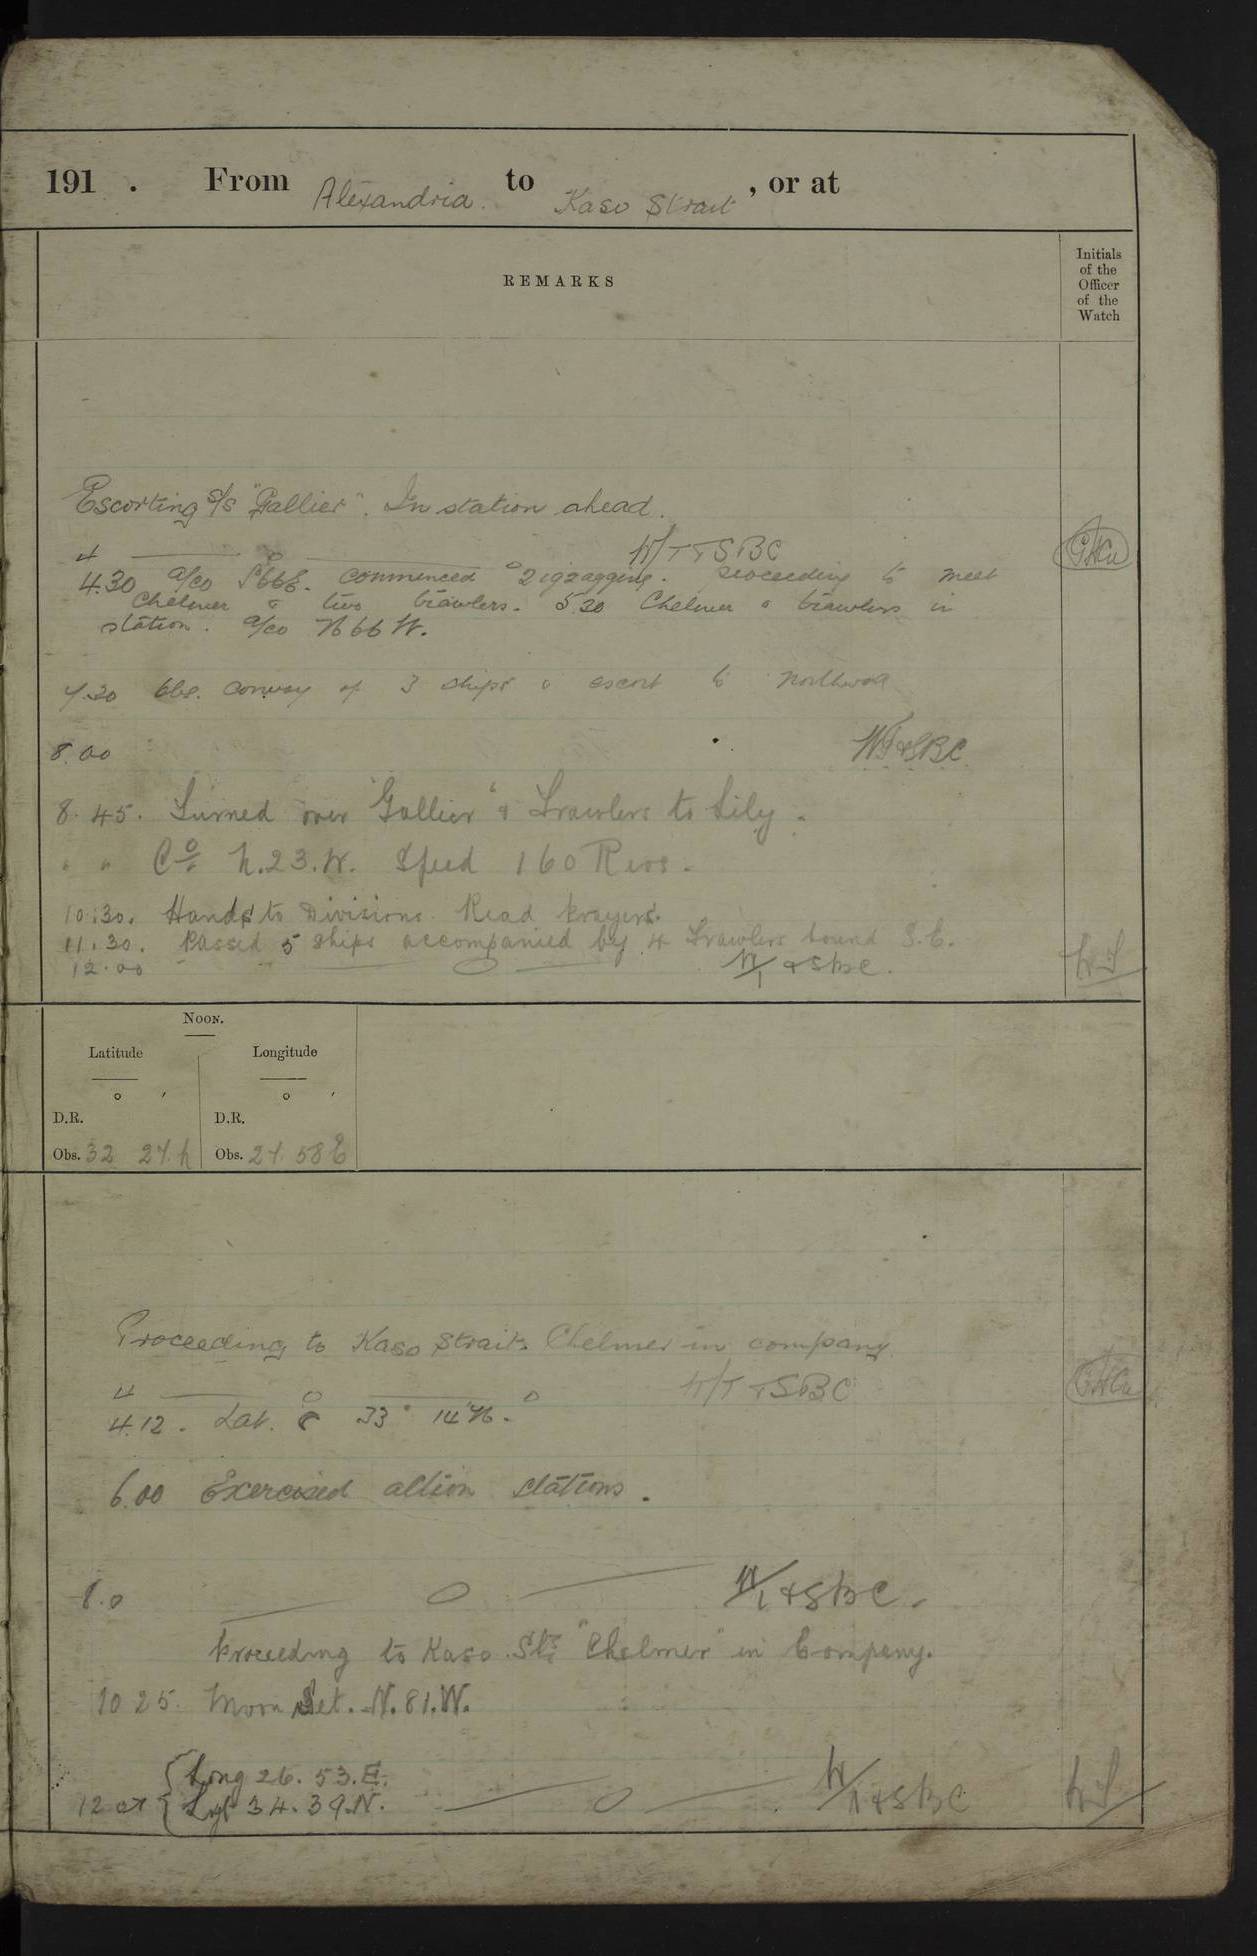 191 . From Alexandria. to Kaso Strait , or at
REMARKS
Initials of the Officer of the Watch
Escorting S/S "Gallier". In station ahead.
4 W/T & SBC
4.30 a/co S66E. commenced zigzagging. Proceeding to meet
Chelmer & two trawlers. 5.30 Chelmer & trawlers in
station. a/co N66W.
7.30 Obs. convoy of 3 ships & escort to northward
8.00 W/T & SBC
8.45. Turned over "Gallier" & Trawlers to Lily.
" " Co N.23.W. Speed 160 Revs.
10.30. Hands to Divisions. Read Prayers.
11.30. Passed 5 ships accompanied by 4 Trawlers bound S.E.
12.00 W/T & SBC.
NOON.
Latitude Longitude
° ′ ° ′
D.R. D.R.
Obs. 32 27.N Obs. 27. 58 E
Proceeding to Kaso Strait. Chelmer in company.
4 W/T & SBC
4.12. Lat. 33° 14'N.
6.00 Exercised action stations.
8.0 W/T & SBC.
Proceeding to Kaso Sts "Chelmer" in Company.
10 25. Moon Set. N.81.W.
Long 26. 53. E.
12 at 34. 39.N. W/T & SBC